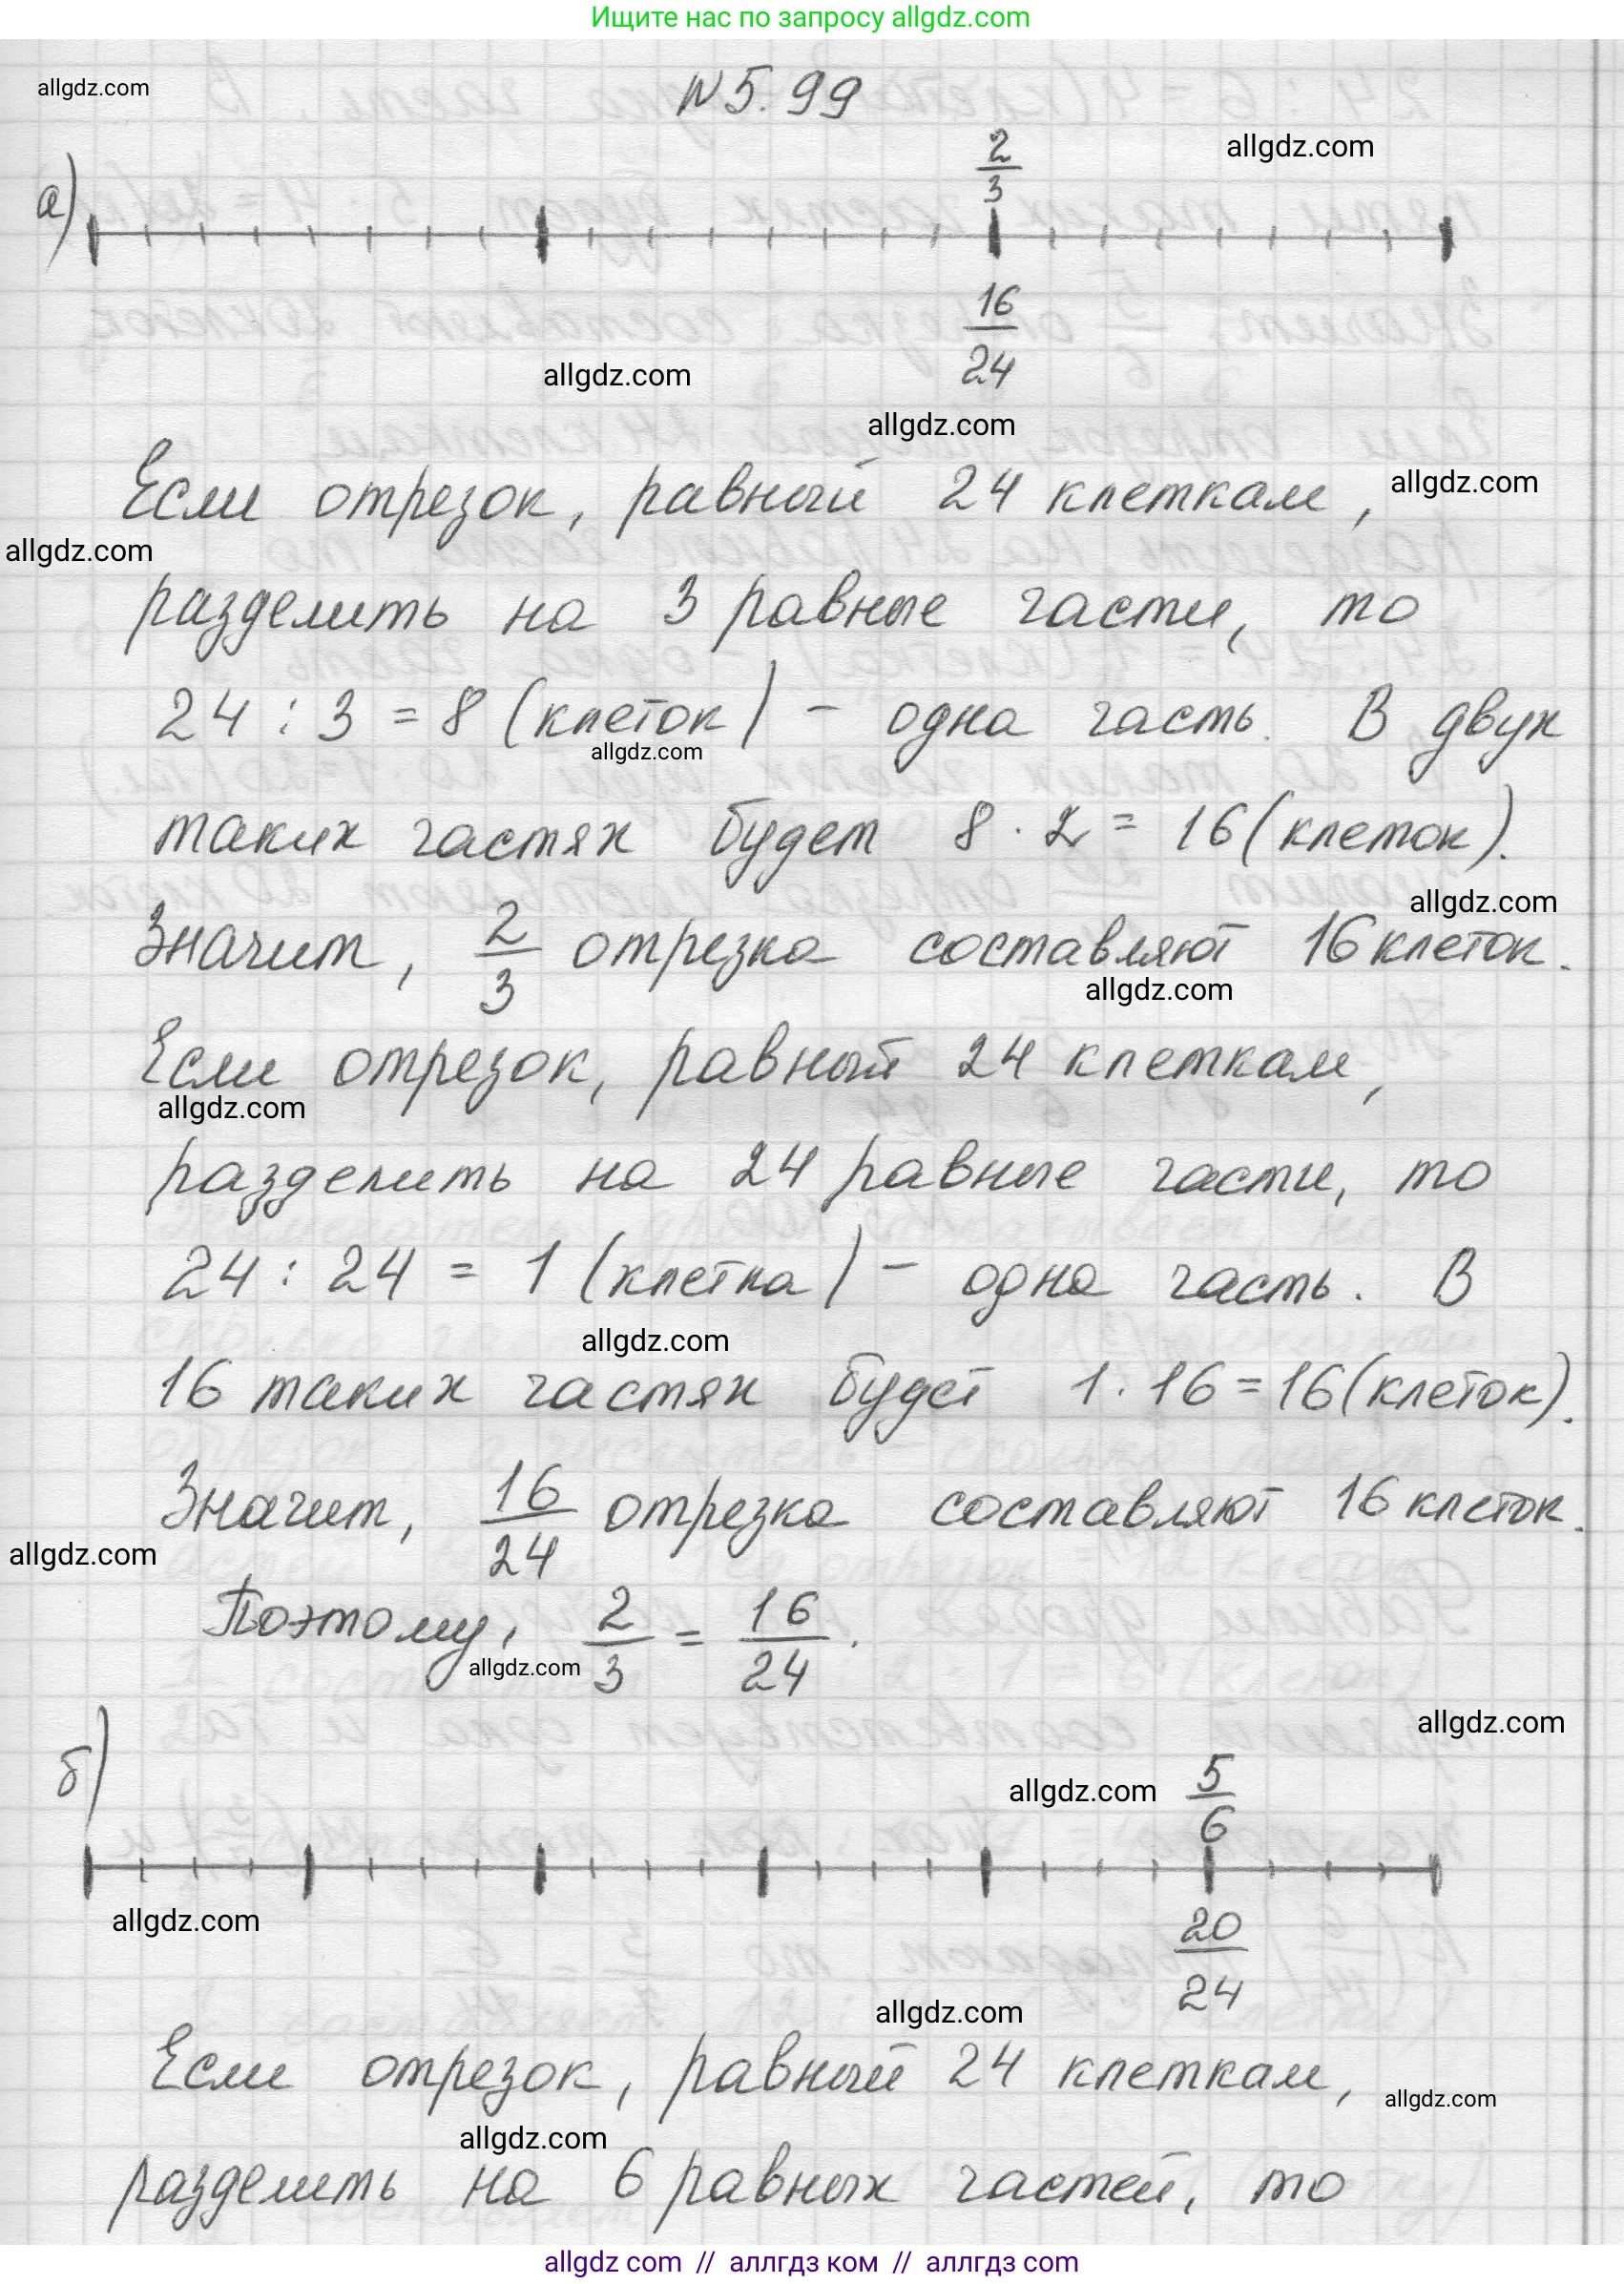 Ищите нас по запросу allgdz.com
allgdz.com
N 5. 99
allgdz.com
а)
2/3
16/24
allgdz.com
allgdz.com
Если отрезок, равный 24 клеткам,
allgdz.com
allgdz.com
разделить на 3 равные части, то
24 : 3 = 8 (клеток) - одна часть. В двух
allgdz.com
таких частях будет 8 · 2 = 16 (клеток).
allgdz.com
Значит, 2/3 отрезка составляют 16 клеток.
allgdz.com
Если отрезок, равный 24 клеткам,
allgdz.com
разделить на 24 равные части, то
24 : 24 = 1 (клетка) - одна часть. В
allgdz.com
16 таких частях будет 1 · 16 = 16 (клеток).
Значит, 16/24 отрезка составляют 16 клеток.
allgdz.com
Поэтому, 2/3 = 16/24.
allgdz.com
allgdz.com
б)
allgdz.com
5/6
allgdz.com
20/24
allgdz.com
Если отрезок, равный 24 клеткам,
allgdz.com
allgdz.com
разделить на 6 равных частей, то
allgdz com // аллгдз ком // аллгдз com